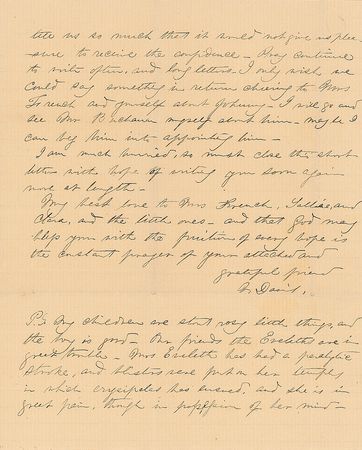 us so much that it would not give us plea-
sure to receive the confidence - Pray continue
to write often, and long letters - I only wish we
could say something in return cheering to Mrs
French and yourself about Johnny - I will go and
see Mr Buchanan myself about him - maybe I
can beg him into appointing him -
I am much hurried, so must close this short
letter with hope of writing you soon again
more at length -
My best love to Mrs French, Sallie, and
Clara, and the little ones - and that God may
bless you with the fruition of every hope is
the constant prayer of your attached and
grateful friend
V. Davis.
P.S. My children are stout rosy little things, and
the boy is good - Our friends the Eveleths are in
great trouble - Mrs Eveleth has had a paralytic
stroke, and blisters were put on her temples
in which erysipelas has ensued, and she is in
great pain, though in possession of her mind -